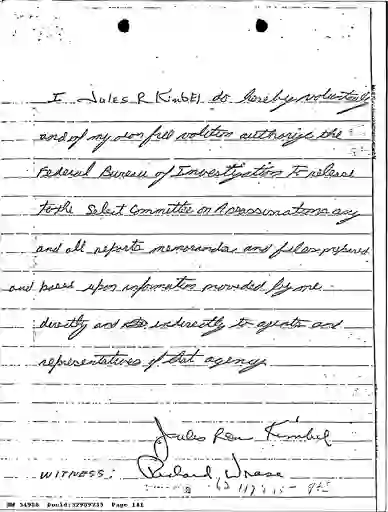 I Jules R Kimbel do hereby voluntarily
and of my own full volition authorize the
Federal Bureau of Investigation to release
to the Select Committee on Assassinations any
and all reports memoranda and files prepared
and based upon information provided by me
directly and indirectly to agents and
representatives of that agency
Jules Ron Kimbel
WITNESS: Richard Wrase
NW 54988 DocId:32989235 Page 181